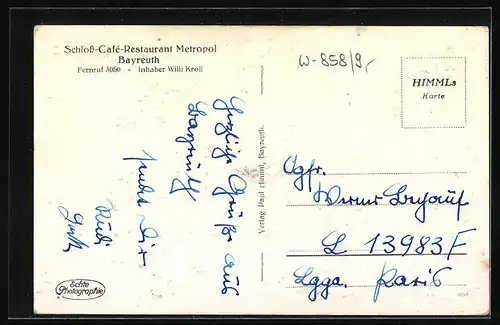 Schloß-Café-Restaurant Metropol
Bayreuth
Fernruf 3050 - Inhaber Willi Kröll
W-858/9,-
HIMMLs
Karte
Herzliche Grüße aus
Bayreuth
sendet Dir
Rudi
Echte
Photographie
Verlag Paul Himml, Bayreuth.
Ogfr.
Werner
L 13983 F
Lgpa. Paris